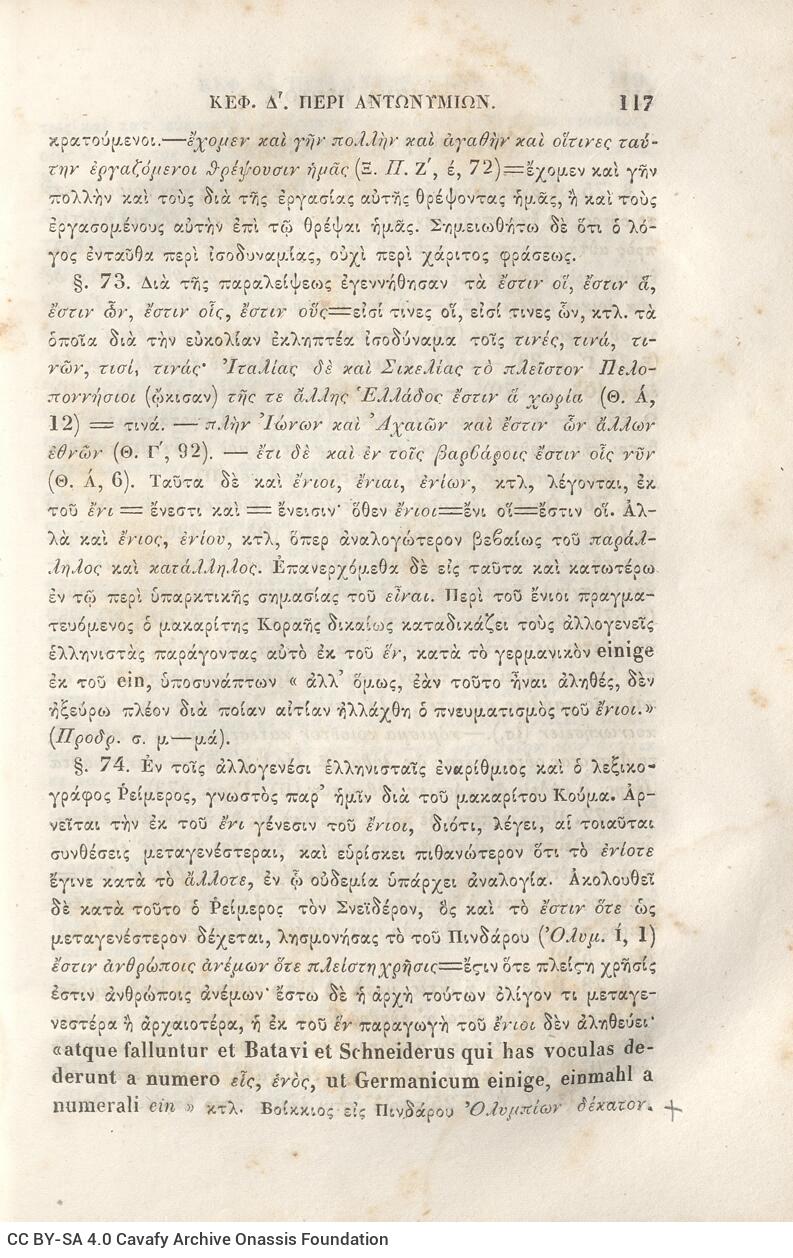 ΚΕΦ. Δ'. ΠΕΡΙ ΑΝΤΩΝΥΜΙΩΝ. 117
κρατούμενοι.—ἔχομεν καὶ γῆν πολλὴν καὶ ἀγαθὴν καὶ οἵτινες ταύ-
την ἐργαζόμενοι θρέψουσιν ἡμᾶς (Ξ. Π. Ζ', έ, 72)=ἔχομεν καὶ γῆν
πολλὴν καὶ τοὺς διὰ τῆς ἐργασίας αὐτῆς θρέψοντας ἡμᾶς, ἢ καὶ τοὺς
ἐργασομένους αὐτὴν ἐπὶ τῷ θρέψαι ἡμᾶς. Σημειωθήτω δὲ ὅτι ὁ λό-
γος ἐνταῦθα περὶ ἰσοδυναμίας, οὐχὶ περὶ χάριτος φράσεως.
§. 73. Διὰ τῆς παραλείψεως ἐγεννήθησαν τὰ ἔστιν οἵ, ἔστιν ἅ,
ἔστιν ὧν, ἔστιν οἷς, ἔστιν οὓς=εἰσί τινες οἵ, εἰσί τινες ὧν, κτλ. τὰ
ὁποῖα διὰ τὴν εὐκολίαν ἐκληπτέα ἰσοδύναμα τοῖς τινές, τινά, τι-
νῶν, τισί, τινάς· Ἰταλίας δὲ καὶ Σικελίας τὸ πλεῖστον Πελο-
ποννήσιοι (ᾤκισαν) τῆς τε ἄλλης Ἑλλάδος ἔστιν ἃ χωρία (Θ. Ά,
12) = τινά. — πλὴν Ἰώνων καὶ Ἀχαιῶν καὶ ἔστιν ὧν ἄλλων
ἐθνῶν (Θ. Γ', 92). — ἔτι δὲ καὶ ἐν τοῖς βαρβάροις ἔστιν οἷς νῦν
(Θ. Ά, 6). Ταῦτα δὲ καὶ ἔνιοι, ἔνιαι, ἐνίων, κτλ, λέγονται, ἐκ
τοῦ ἔνι = ἔνεστι καὶ = ἔνεισιν· ὅθεν ἔνιοι=ἔνι οἵ=ἔστιν οἵ. Ἀλ-
λὰ καὶ ἔνιος, ἐνίου, κτλ, ὅπερ ἀναλογώτερον βεβαίως τοῦ παράλ-
ληλος καὶ κατάλληλος. Ἐπανερχόμεθα δὲ εἰς ταῦτα καὶ κατωτέρω
ἐν τῷ περὶ ὑπαρκτικῆς σημασίας τοῦ εἶναι. Περὶ τοῦ ἔνιοι πραγμα-
τευόμενος ὁ μακαρίτης Κοραῆς δικαίως καταδικάζει τοὺς ἀλλογενεῖς
ἑλληνιστὰς παράγοντας αὐτὸ ἐκ τοῦ ἕν, κατὰ τὸ γερμανικὸν einige
ἐκ τοῦ ein, ὑποσυνάπτων « ἀλλ' ὅμως, ἐὰν τοῦτο ἦναι ἀληθές, δὲν
ἠξεύρω πλέον διὰ ποίαν αἰτίαν ἠλλάχθη ὁ πνευματισμὸς τοῦ ἔνιοι.»
(Προδρ. σ. μ—μά).
§. 74. Ἐν τοῖς ἀλλογενέσι ἑλληνισταῖς ἐναρίθμιος καὶ ὁ λεξικο-
γράφος Ῥείμερος, γνωστὸς παρ' ἡμῖν διὰ τοῦ μακαρίτου Κούμα. Ἀρ-
νεῖται τὴν ἐκ τοῦ ἔνι γένεσιν τοῦ ἔνιοι, διότι, λέγει, αἱ τοιαῦται
συνθέσεις μεταγενέστεραι, καὶ εὑρίσκει πιθανώτερον ὅτι τὸ ἐνίοτε
ἔγινε κατὰ τὸ ἄλλοτε, ἐν ᾧ οὐδεμία ὑπάρχει ἀναλογία. Ἀκολουθεῖ
δὲ κατὰ τοῦτο ὁ Ῥείμερος τὸν Σνεϊδέρον, ὃς καὶ τὸ ἔστιν ὅτε ὡς
μεταγενέστερον δέχεται, λησμονήσας τὸ τοῦ Πινδάρου (Ὀλυμ. Ί, 1)
ἔστιν ἀνθρώποις ἀνέμων ὅτε πλείστη χρῆσις=ἔςιν ὅτε πλείςη χρῆσίς
ἐστιν ἀνθρώποις ἀνέμων· ἔστω δὲ ἡ ἀρχὴ τούτων ὀλίγον τι μεταγε-
νεστέρα ἢ ἀρχαιοτέρα, ἡ ἐκ τοῦ ἓν παραγωγὴ τοῦ ἔνιοι δὲν ἀληθεύει·
«atque falluntur et Batavi et Schneiderus qui has voculas de-
derunt a numero εἷς, ἑνὸς, ut Germanicum einige, einmahl a
numerali ein » κτλ. Βοίκκιος εἰς Πινδάρου Ὀλυμπίων δέκατον. +
CC BY-SA 4.0 Cavafy Archive Onassis Foundation